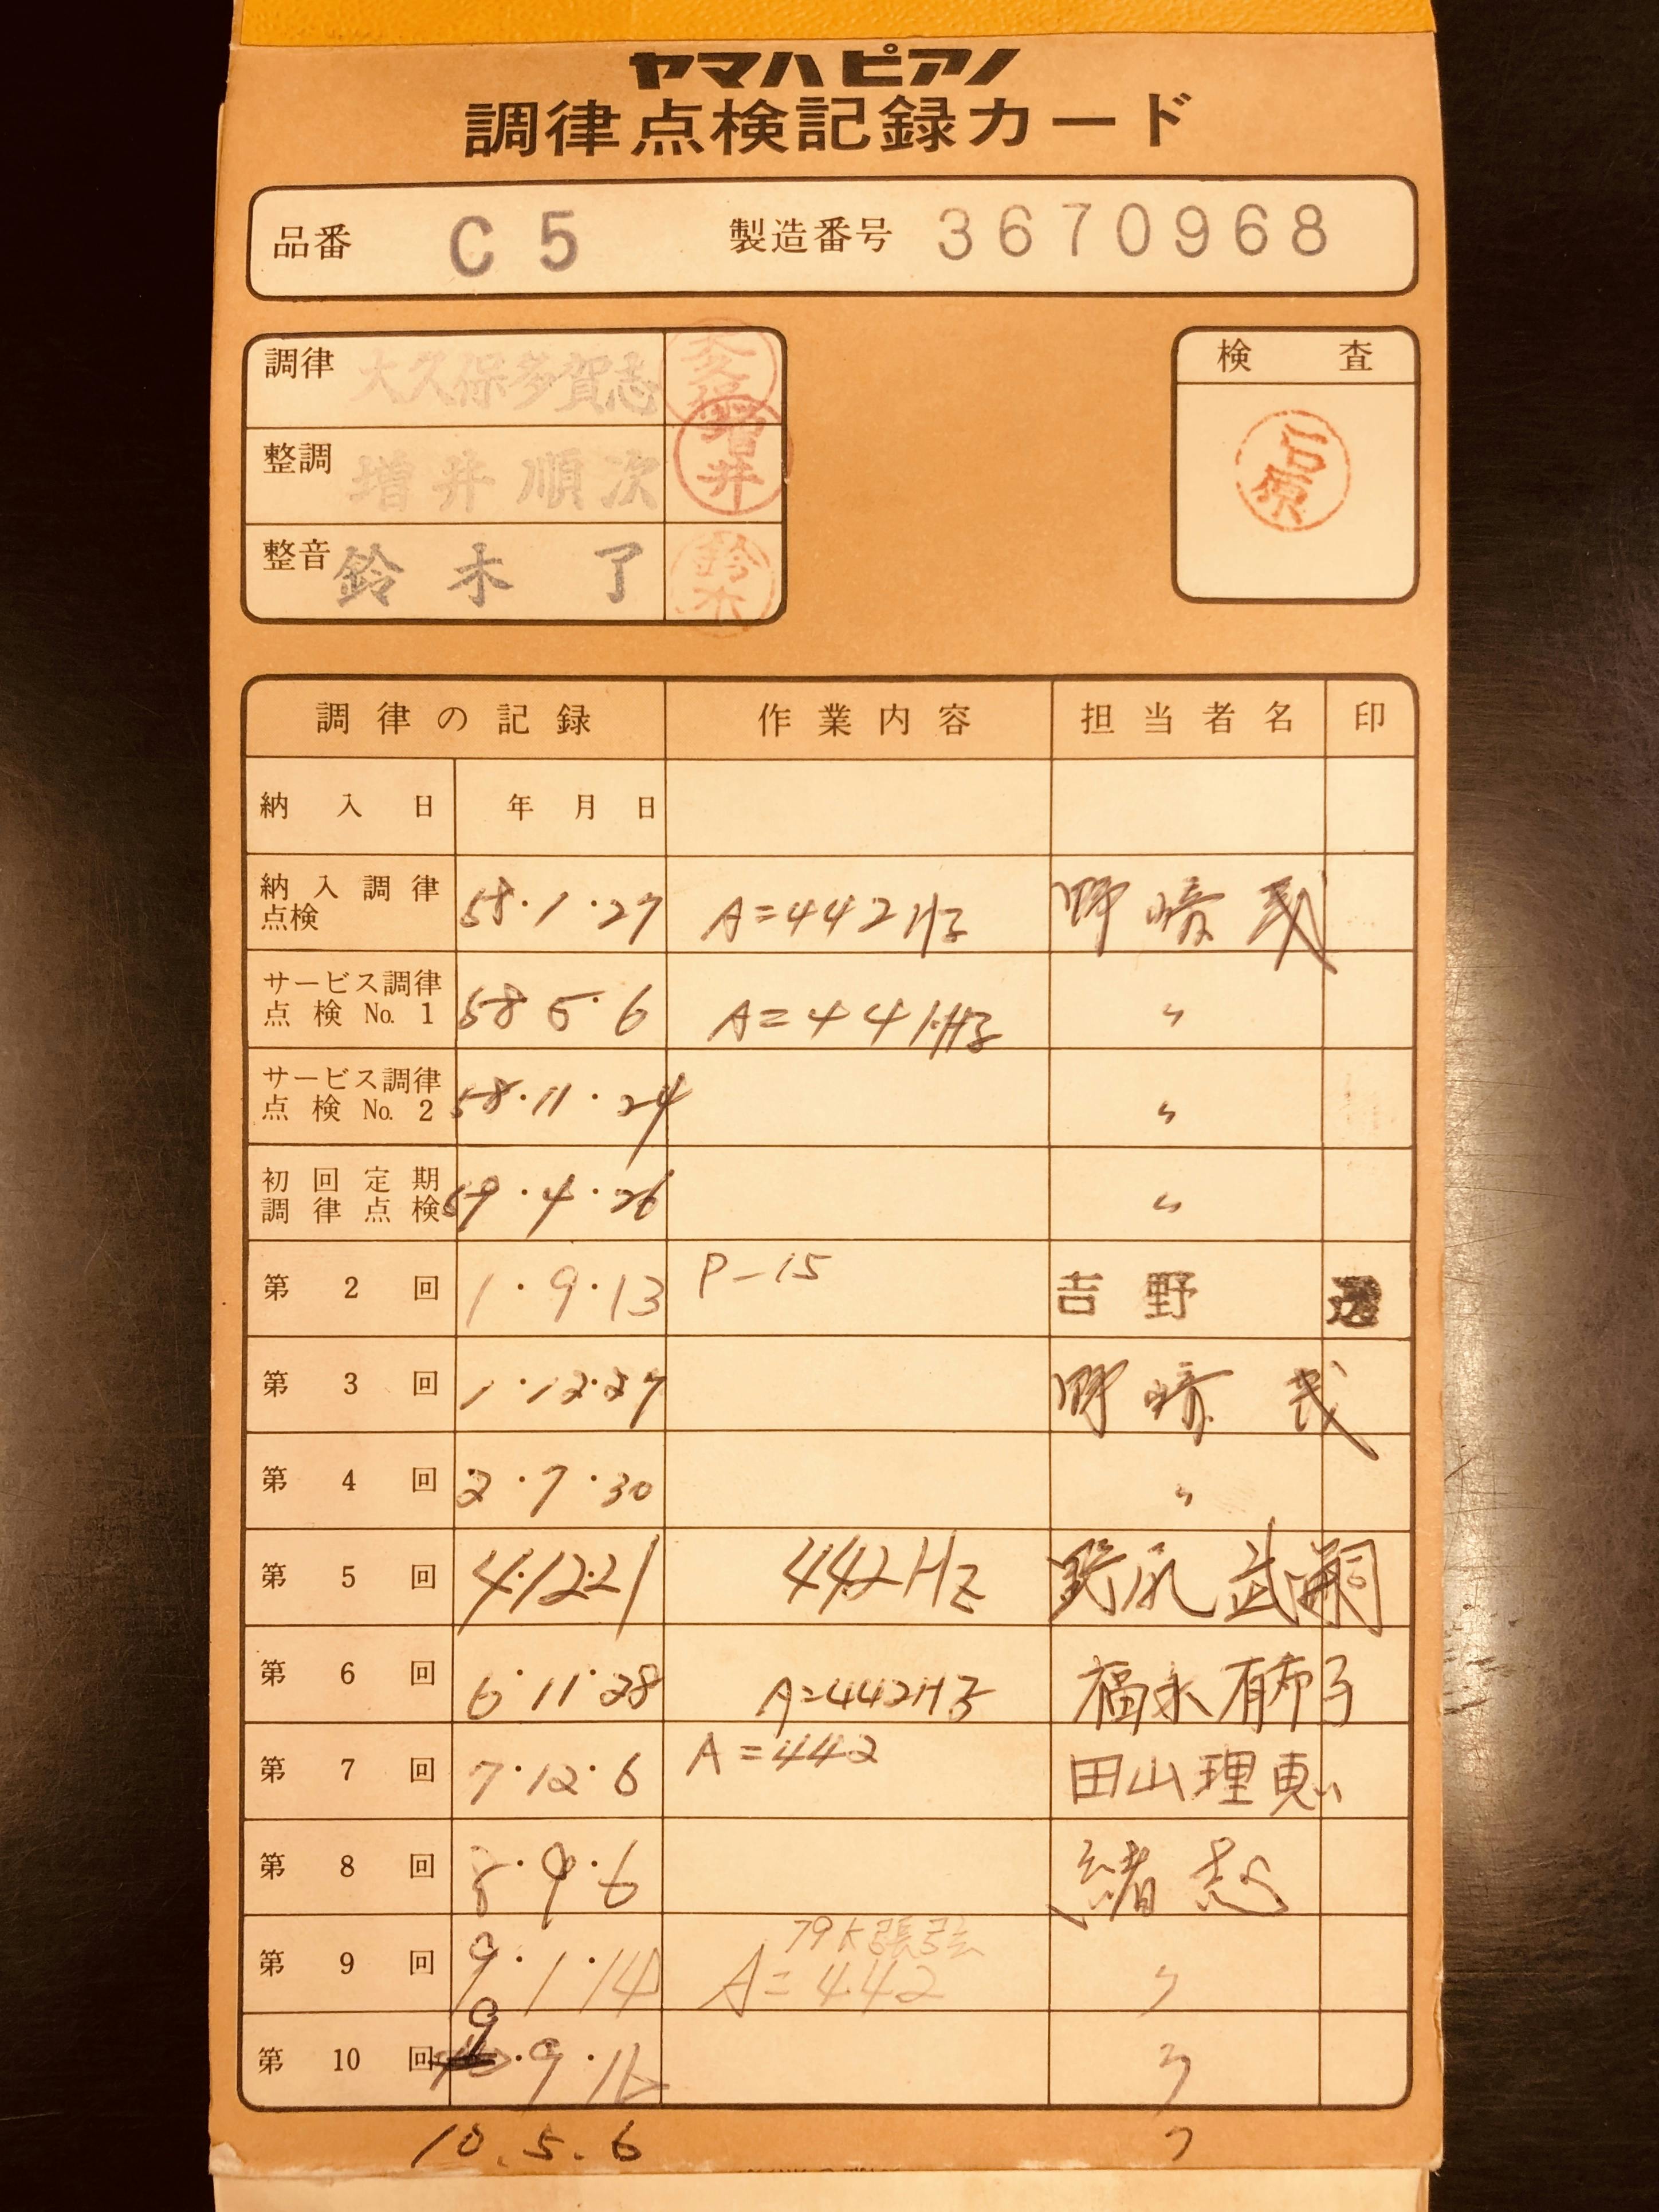 ヤマハピアノ
調律点検記録カード
品番 C5 製造番号 3670968
調律 大久保多賀志
整調 増井順次 増井
整音 鈴木了 鈴木
検査
石原
調律の記録 作業内容 担当者名 印
納入日 年 月 日
納入調律点検 58・1・27 A=442Hz
サービス調律点検 No. 1 58 5・6 A=441Hz 〃
サービス調律点検 No. 2 58・11・24 〃
初回定期調律点検 59・4・26 〃
第2回 1・9・13 P-15 吉野
第3回 1・12・27
第4回 2・7・30 〃
第5回 4・12・21 442Hz
第6回 6・11・28 A=442Hz 福永有希子
第7回 7・12・6 A=442 田山理恵
第8回 8・9・6
第9回 9・1・14 79K張弦 A=442 〃
第10回 9・9・16 〃
10.5.6 〃